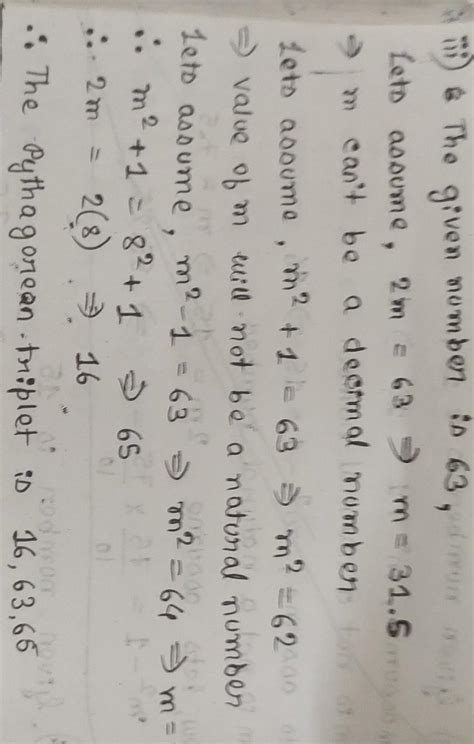 iii) The given number is 63,
Lets assume, 2m = 63 ⇒ m = 31.5
⇒ m can't be a decimal number
Lets assume, m² + 1 = 63 ⇒ m² = 62
⇒ value of m will not be a natural number
Lets assume, m² - 1 = 63 ⇒ m² = 64 ⇒ m =
∴ m² + 1 = 8² + 1 ⇒ 65
∴ 2m = 2(8) ⇒ 16
∴ The Pythagorean triplet is 16, 63, 65